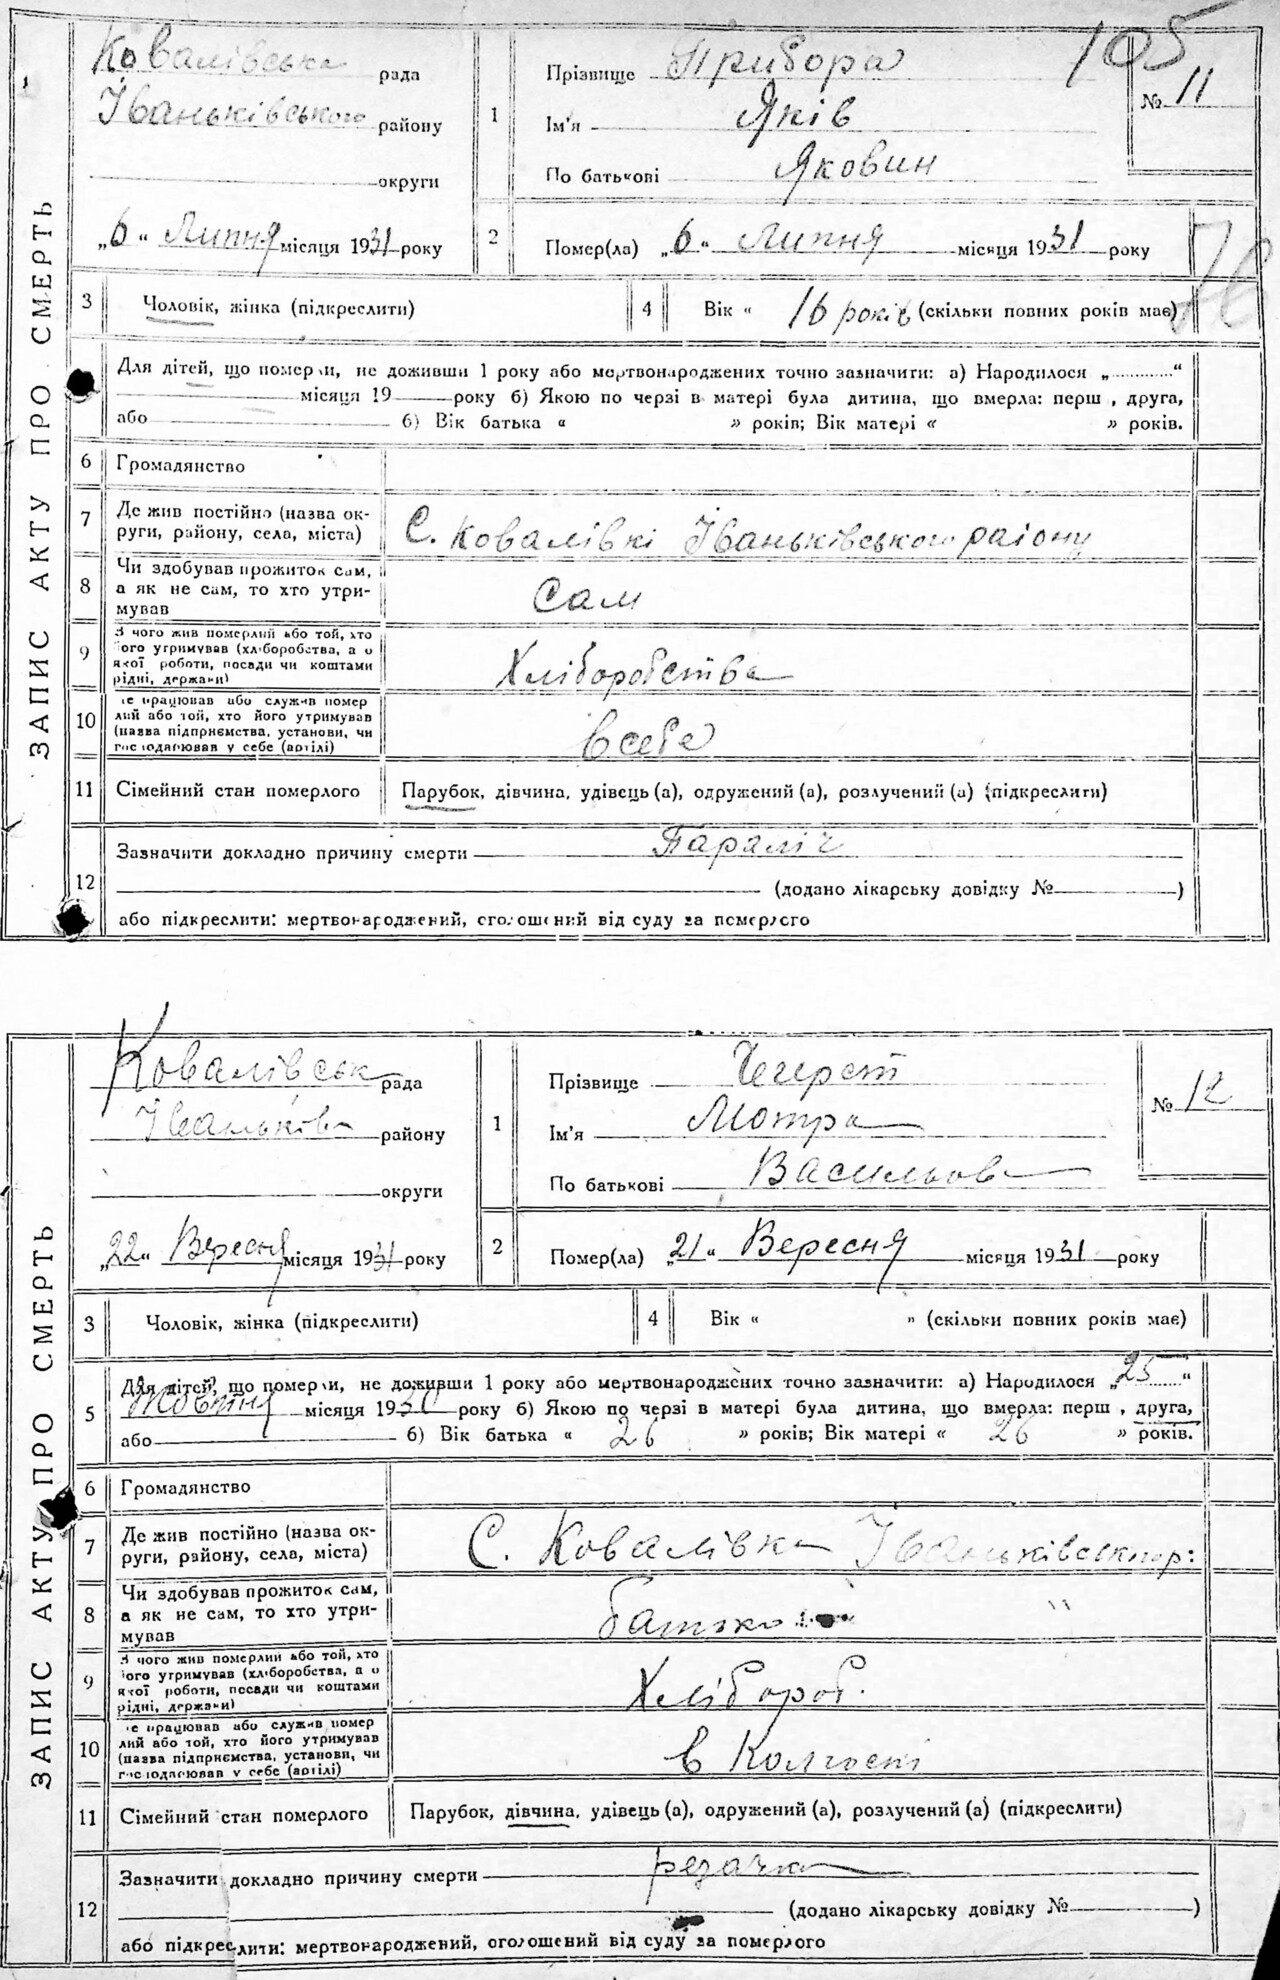 105
ЗАПИС АКТУ ПРО СМЕРТЬ
Ковалівська рада
Іваньківського району
округи
„6“ Липня місяця 1931 року
1
Прізвище Прибора
Ім'я Яків
По батькові Яковин
№ 11
2
Помер(ла) „6“ Липня місяця 1931 року
3 Чоловік, жінка (підкреслити)
4 Вік „ 16 років (скільки повних років має)
Для дітей, що померли, не доживши 1 року або мертвонароджених точно зазначити: а) Народилося „ “
місяця 19 року б) Якою по черзі в матері була дитина, що вмерла: перш , друга,
або б) Вік батька „ ” років; Вік матері „ ” років.
6 Громадянство
7 Де жив постійно (назва ок-
руги, район, села, міста)
С. Ковалівкі Іваньківського раіону
8 Чи здобував прожиток сам,
а як не сам, то хто утри-
мував
Сам
9 З чого жив померлий або той, хто
його утримував (хліборобства, а о
якої роботи, посади чи коштами
рідні, держави)
Хліборобства
10 Де працював або служив помер
лий або той, хто його утримував
(назва підприємства, установи, чи
господарював у себе (артілі)
В себе
11 Сімейний стан померлого Парубок, дівчина, удівець (а), одружений (а), розлучений (а) (підкреслити)
12 Зазначити докладно причину смерти Параліч
(додано лікарську довідку № )
або підкреслити: мертвонароджений, оголошений від суду за померлого
ЗАПИС АКТУ ПРО СМЕРТЬ
Ковалівськ рада
Іванькова району
округи
„22“ Вересня місяця 1931 року
1
Прізвище
Ім'я Мотра
По батькові Васильова
№ 12
2
Помер(ла) „21“ Вересня місяця 1931 року
3 Чоловік, жінка (підкреслити)
4 Вік „ ” (скільки повних років має)
5 Для дітей, що померли, не доживши 1 року або мертвонароджених точно зазначити: а) Народилося „25“
Жовтня місяця 1930 року б) Якою по черзі в матері була дитина, що вмерла: перш , друга,
або б) Вік батька „ 26 ” років; Вік матері „ 26 ” років.
6 Громадянство
7 Де жив постійно (назва ок-
руги, район, села, міста)
С. Ковалівка
8 Чи здобував прожиток сам,
а як не сам, то хто утри-
мував
батько "
9 З чого жив померлий або той, хто
його утримував (хліборобства, а о
якої роботи, посади чи коштами
рідні, держави)
Хлібороб.
10 Де працював або служив помер
лий або той, хто його утримував
(назва підприємства, установи, чи
господарював у себе (артілі)
в Колгоспі
11 Сімейний стан померлого Парубок, дівчина, удівець (а), одружений (а), розлучений (а) (підкреслити)
12 Зазначити докладно причину смерти резачка
(додано лікарську довідку № )
або підкреслити: мертвонароджений, оголошений від суду за померлого